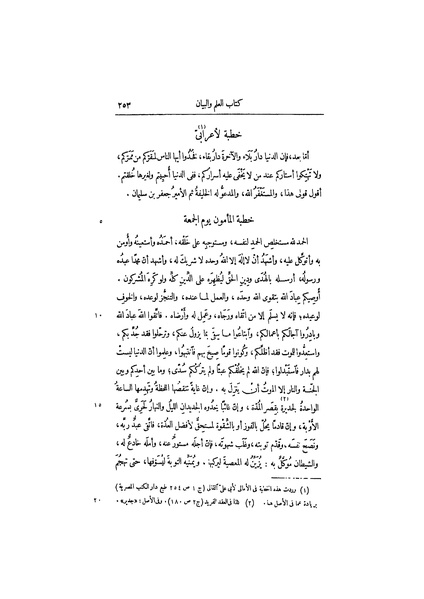 كتاب العلم والبيان ٢٥٣
خطبة لأعرابىّ (١)
أما بعد، فإن الدنيا دار بلاء، والآخرة دار بقاء، فخذوا أيها الناس لمقرّكم من ممرّكم،
ولا تهتكوا أستاركم عند من لا يخفى عليه أسراركم، ففى الدنيا أحييتم ولغيرها خلقتم.
أقول قولى هذا، والمستغفَر الله، والمدعوّ له الخليفة ثم الأمير جعفر بن سليمان.
خطبة المأمون يوم الجمعة ٥
الحمد لله مستخلص الحمد لنفسه، ومستوجبه على خلقه، أحمده وأستعينه وأومن
به وأتوكل عليه، وأشهد أن لا إله إلا الله وحده لا شريك له، وأشهد أن محمدا عبده
ورسوله، أرسله بالهدى ودين الحقّ ليُظهره على الدِّين كلِّه ولو كره المشركون.
أوصيكم عبادَ الله بتقوى الله وحده، والعمل لما عنده، والتنجّز لوعده، والخوف
لوعيده؛ فإنه لا يسلم إلا من اتقاه ورجاه، وعمل له وأرضاه. فاتقوا اللهَ عبادَ الله ١٠
وبادروا آجالكم بأعمالكم، وابتاعوا ما يبقى بما يزول عنكم، وترحلوا فقد جُدّ بكم،
واستعدّوا للموت فقد أظلّكم، وكونوا قوما صيح بهم فانتبهوا، وعلموا أن الدنيا ليست
لهم بدار فاستبدلوا؛ فإن الله لم يخلقكم عبثا ولم يترككم سُدًى؛ وما بين أحدكم وبين
الجنة والنار إلا الموتُ أن ينزل به. وإن غاية تنقصها اللحظة وتهدمها الساعة
الواحدة لجديرة (٢) بقصر المدّة، وإن غائبا يحدوه الجديدان الليلُ والنهار لحَرِىٌّ بسرعة ١٥
الأوبة، وإن قادما يحلّ بالفوز أو بالشقوة لمستحقٌّ لأفضل العدّة، فاتّقى عبدٌ ربه،
ونصح نفسه، وقدّم توبته، وغلب شهوته، فإن أجله مستورٌ عنه، وأمله خادعٌ له،
والشيطان موكَّل به: يزيِّن له المعصية ليركبها، ويُمنِّيه التوبة ليسوّفها، حتى تهجُم
(١) وردت هذه الخطبة فى الأمالى لأبى علىّ القالى (ج ١ ص ٢٥٤ طبع دار الكتب المصرية)
بزيادة عما فى الأصل هنا. (٢) كذا فى العقد الفريد (ج ٢ ص ١٨٠). وفى الأصل: «جدير». ٢٠